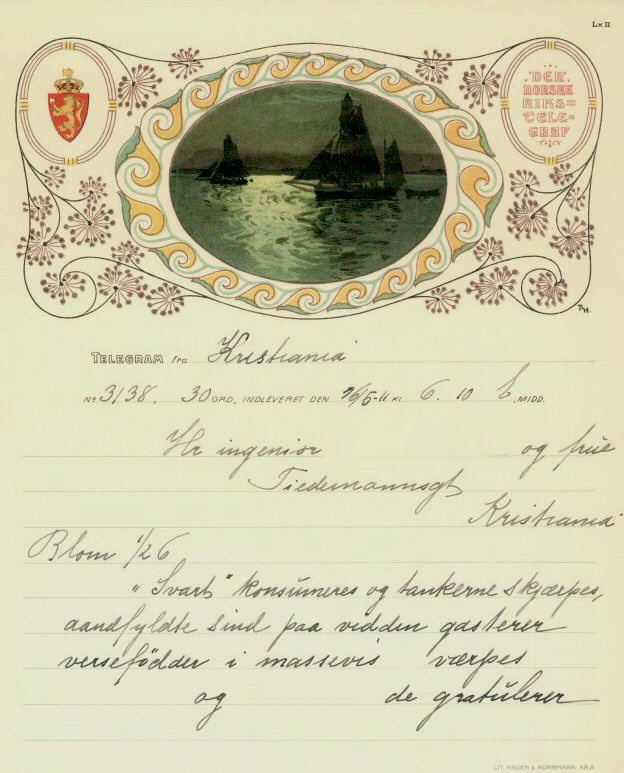 Lx II
DEN
NORSKE
RIKS=
TELE=
GRAF
TELEGRAM fra Kristiania
No 3138. 30 ORD, INDLEVERET DEN 26/5-11 KL. 6.10 E. MIDD.
Hr ingeniør og frue
Tiedemannsgt
Kristiania
Blom 1/26
"Svart" konsumeres og tankerne skjærpes,
aandfyldte sind paa vidden gasterer
versefödder i massevis værpes
og de gratulerer
LIT. HAGEN & KORNMANN. KR.A